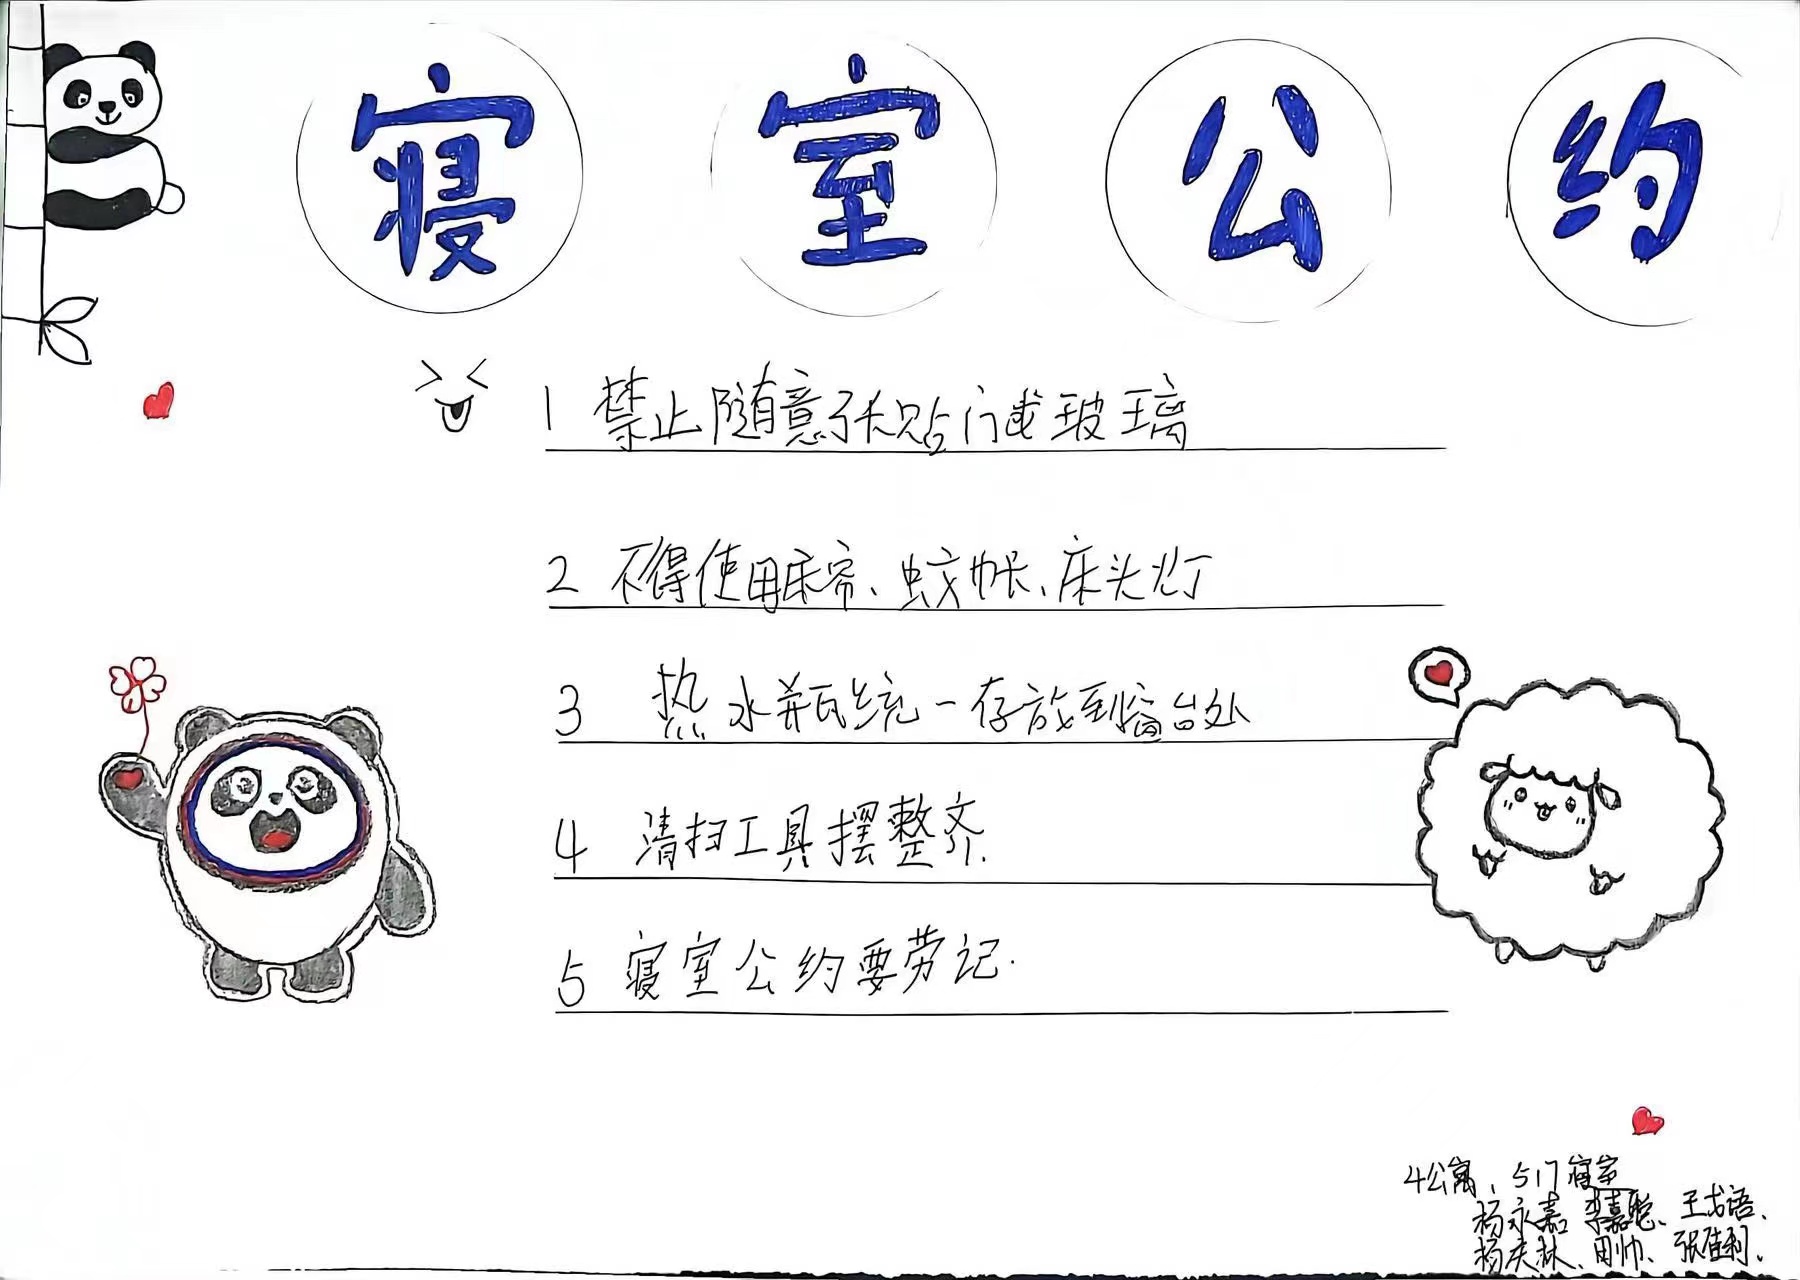 寝室公约
1 禁止随意张贴门或玻璃
2 不得使用床帘、蚊帐、床头灯
3 热水瓶统一存放到窗台处
4 清扫工具摆整齐.
5 寝室公约要劳记.
4公寓, 517寝室
杨永嘉 李嘉聪、王戈语、
杨庆林、周帅、张佳利.